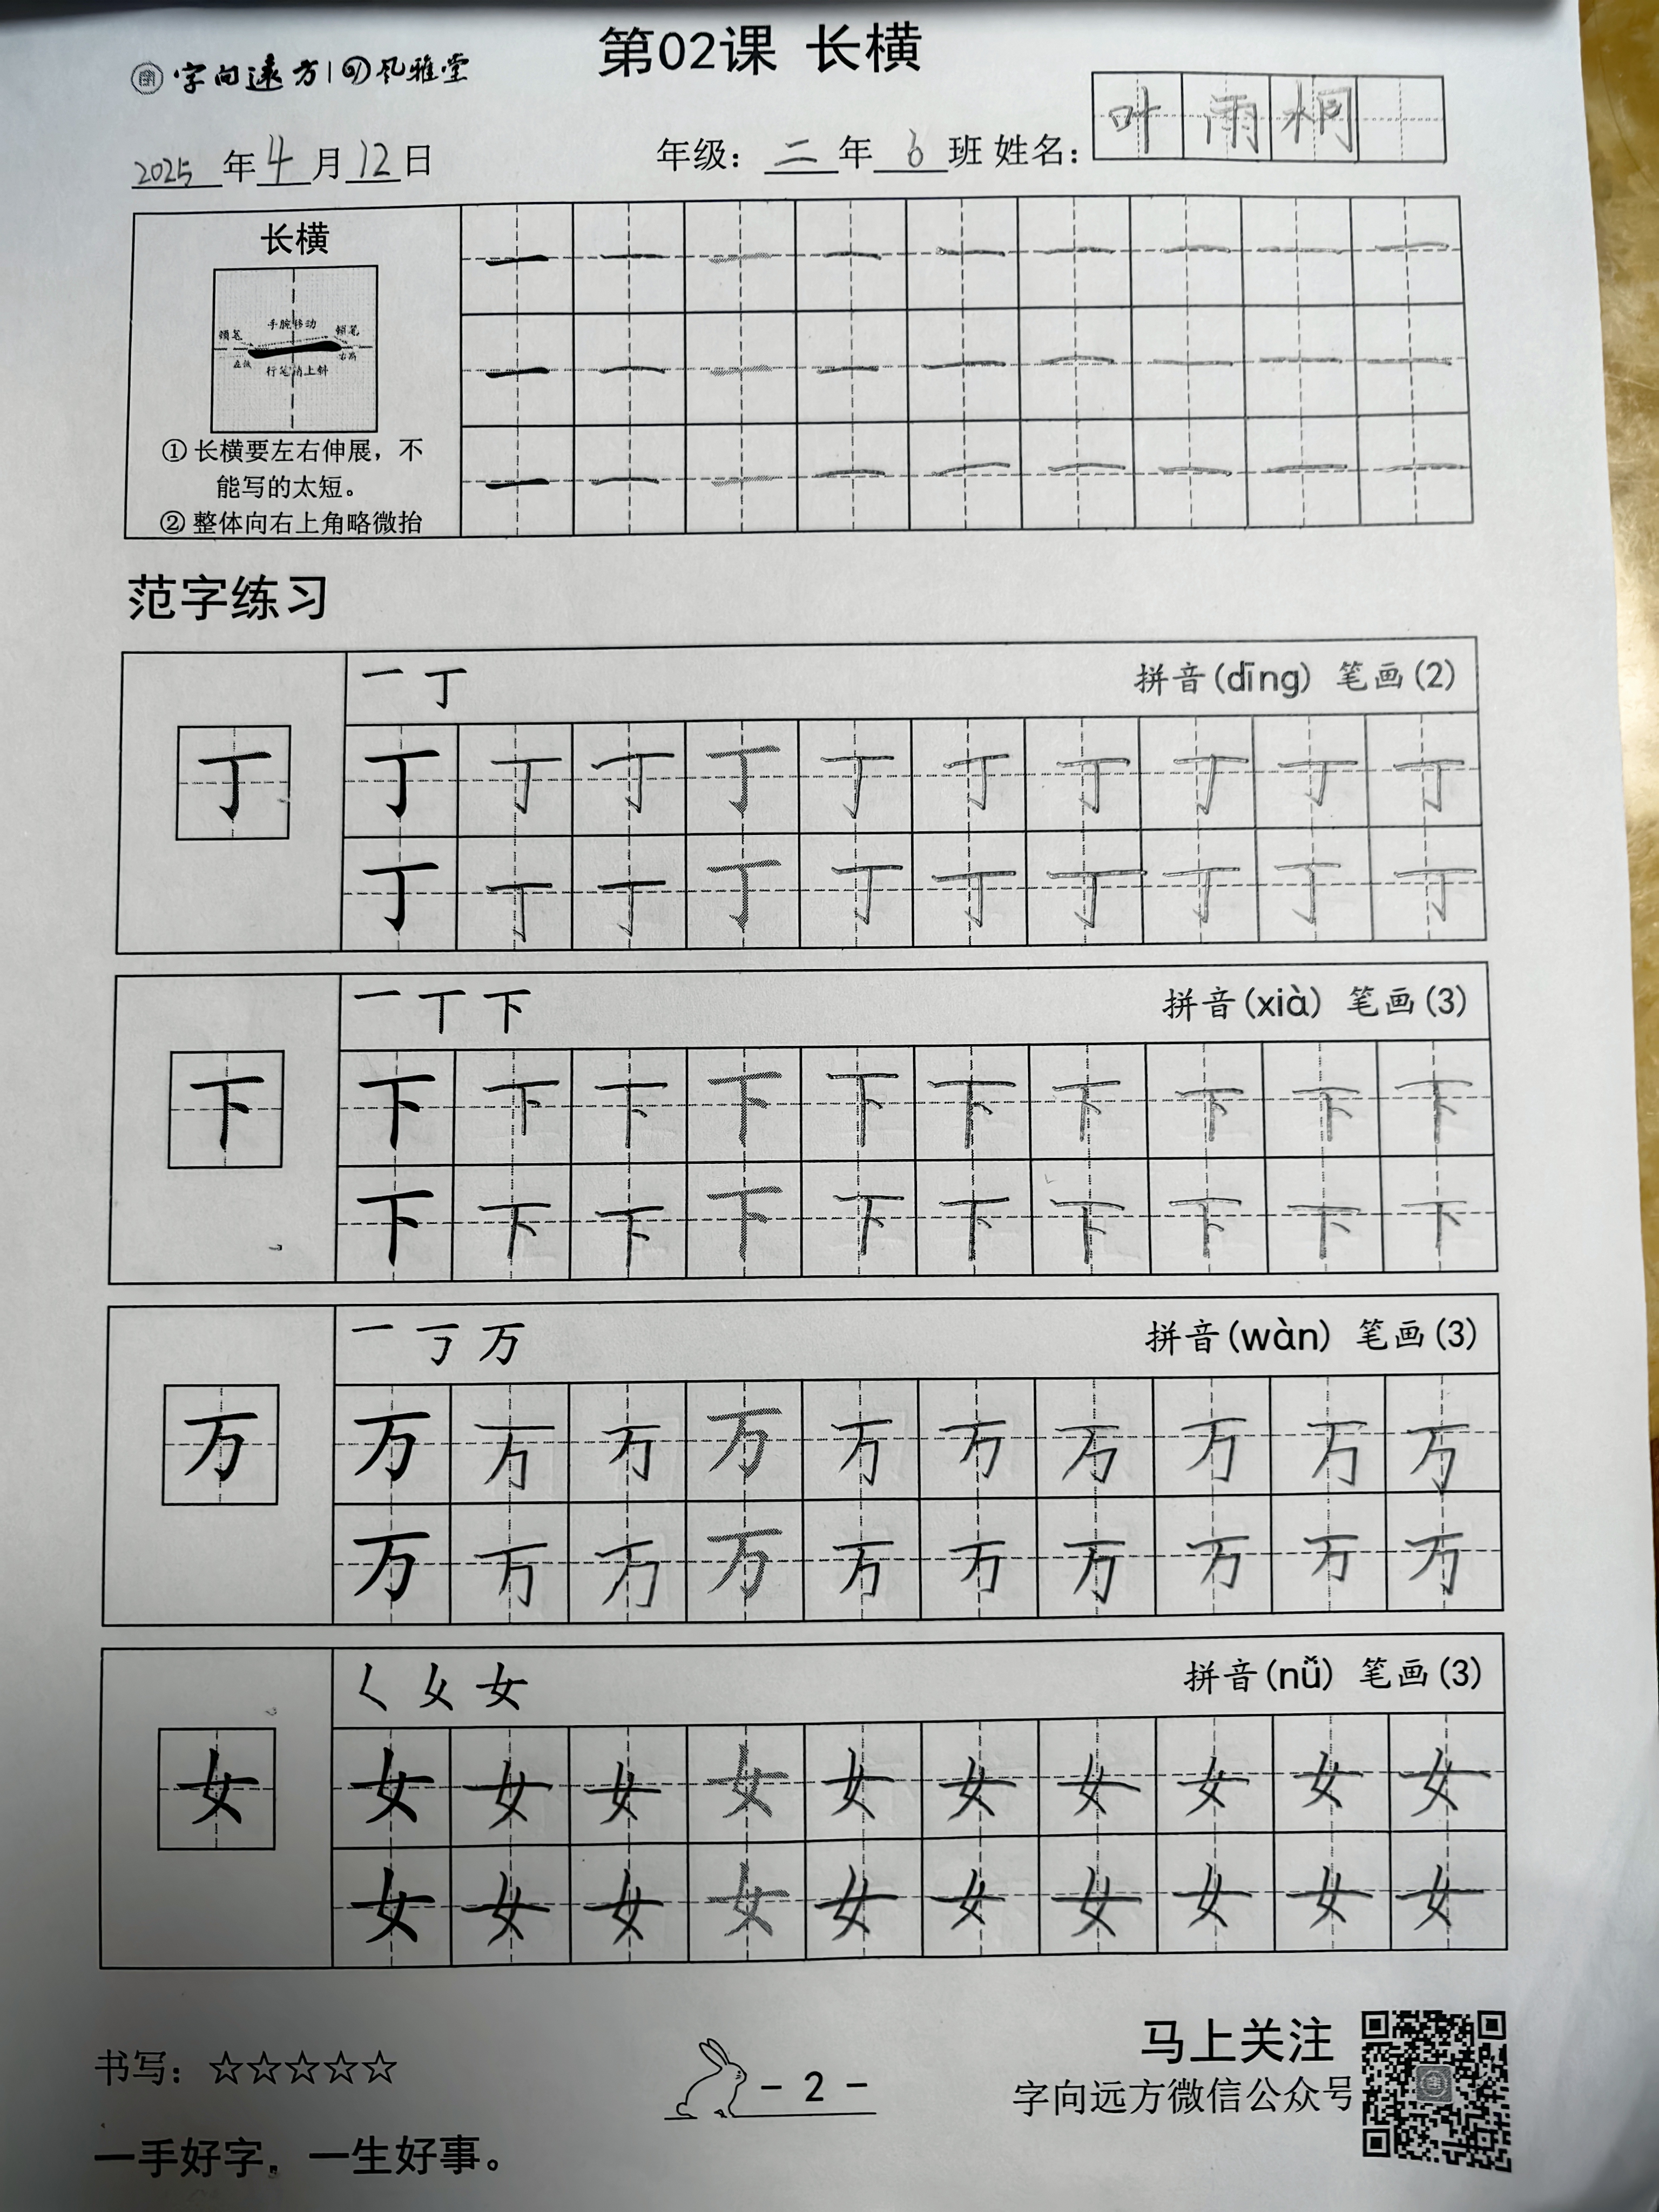 第02课 长横
字向远方 | 风雅堂
2025年4月12日 年级：二年6班 姓名：叶雨桐
长横
顿笔 手腕移动 顿笔
左低 行笔稍上斜 右高
① 长横要左右伸展，不
能写的太短。
② 整体向右上角略微抬
一 一 一 一 一 一 一 一 一
一 一 一 一 一 一 一 一 一
一 一 一 一 一 一 一 一 一
范字练习
一 丁 拼音(dīng) 笔画(2)
丁 丁 丁 丁 丁 丁 丁 丁 丁 丁 丁
丁 丁 丁 丁 丁 丁 丁 丁 丁 丁
一 丅 下 拼音(xià) 笔画(3)
下 下 下 下 下 下 下 下 下 下 下
下 下 下 下 下 下 下 下 下 下
一 丂 万 拼音(wàn) 笔画(3)
万 万 万 万 万 万 万 万 万 万 万
万 万 万 万 万 万 万 万 万 万
女 拼音(nǚ) 笔画(3)
女 女 女 女 女 女 女 女 女 女 女
女 女 女 女 女 女 女 女 女 女
书写：☆☆☆☆☆
- 2 -
马上关注
字向远方微信公众号
一手好字，一生好事。